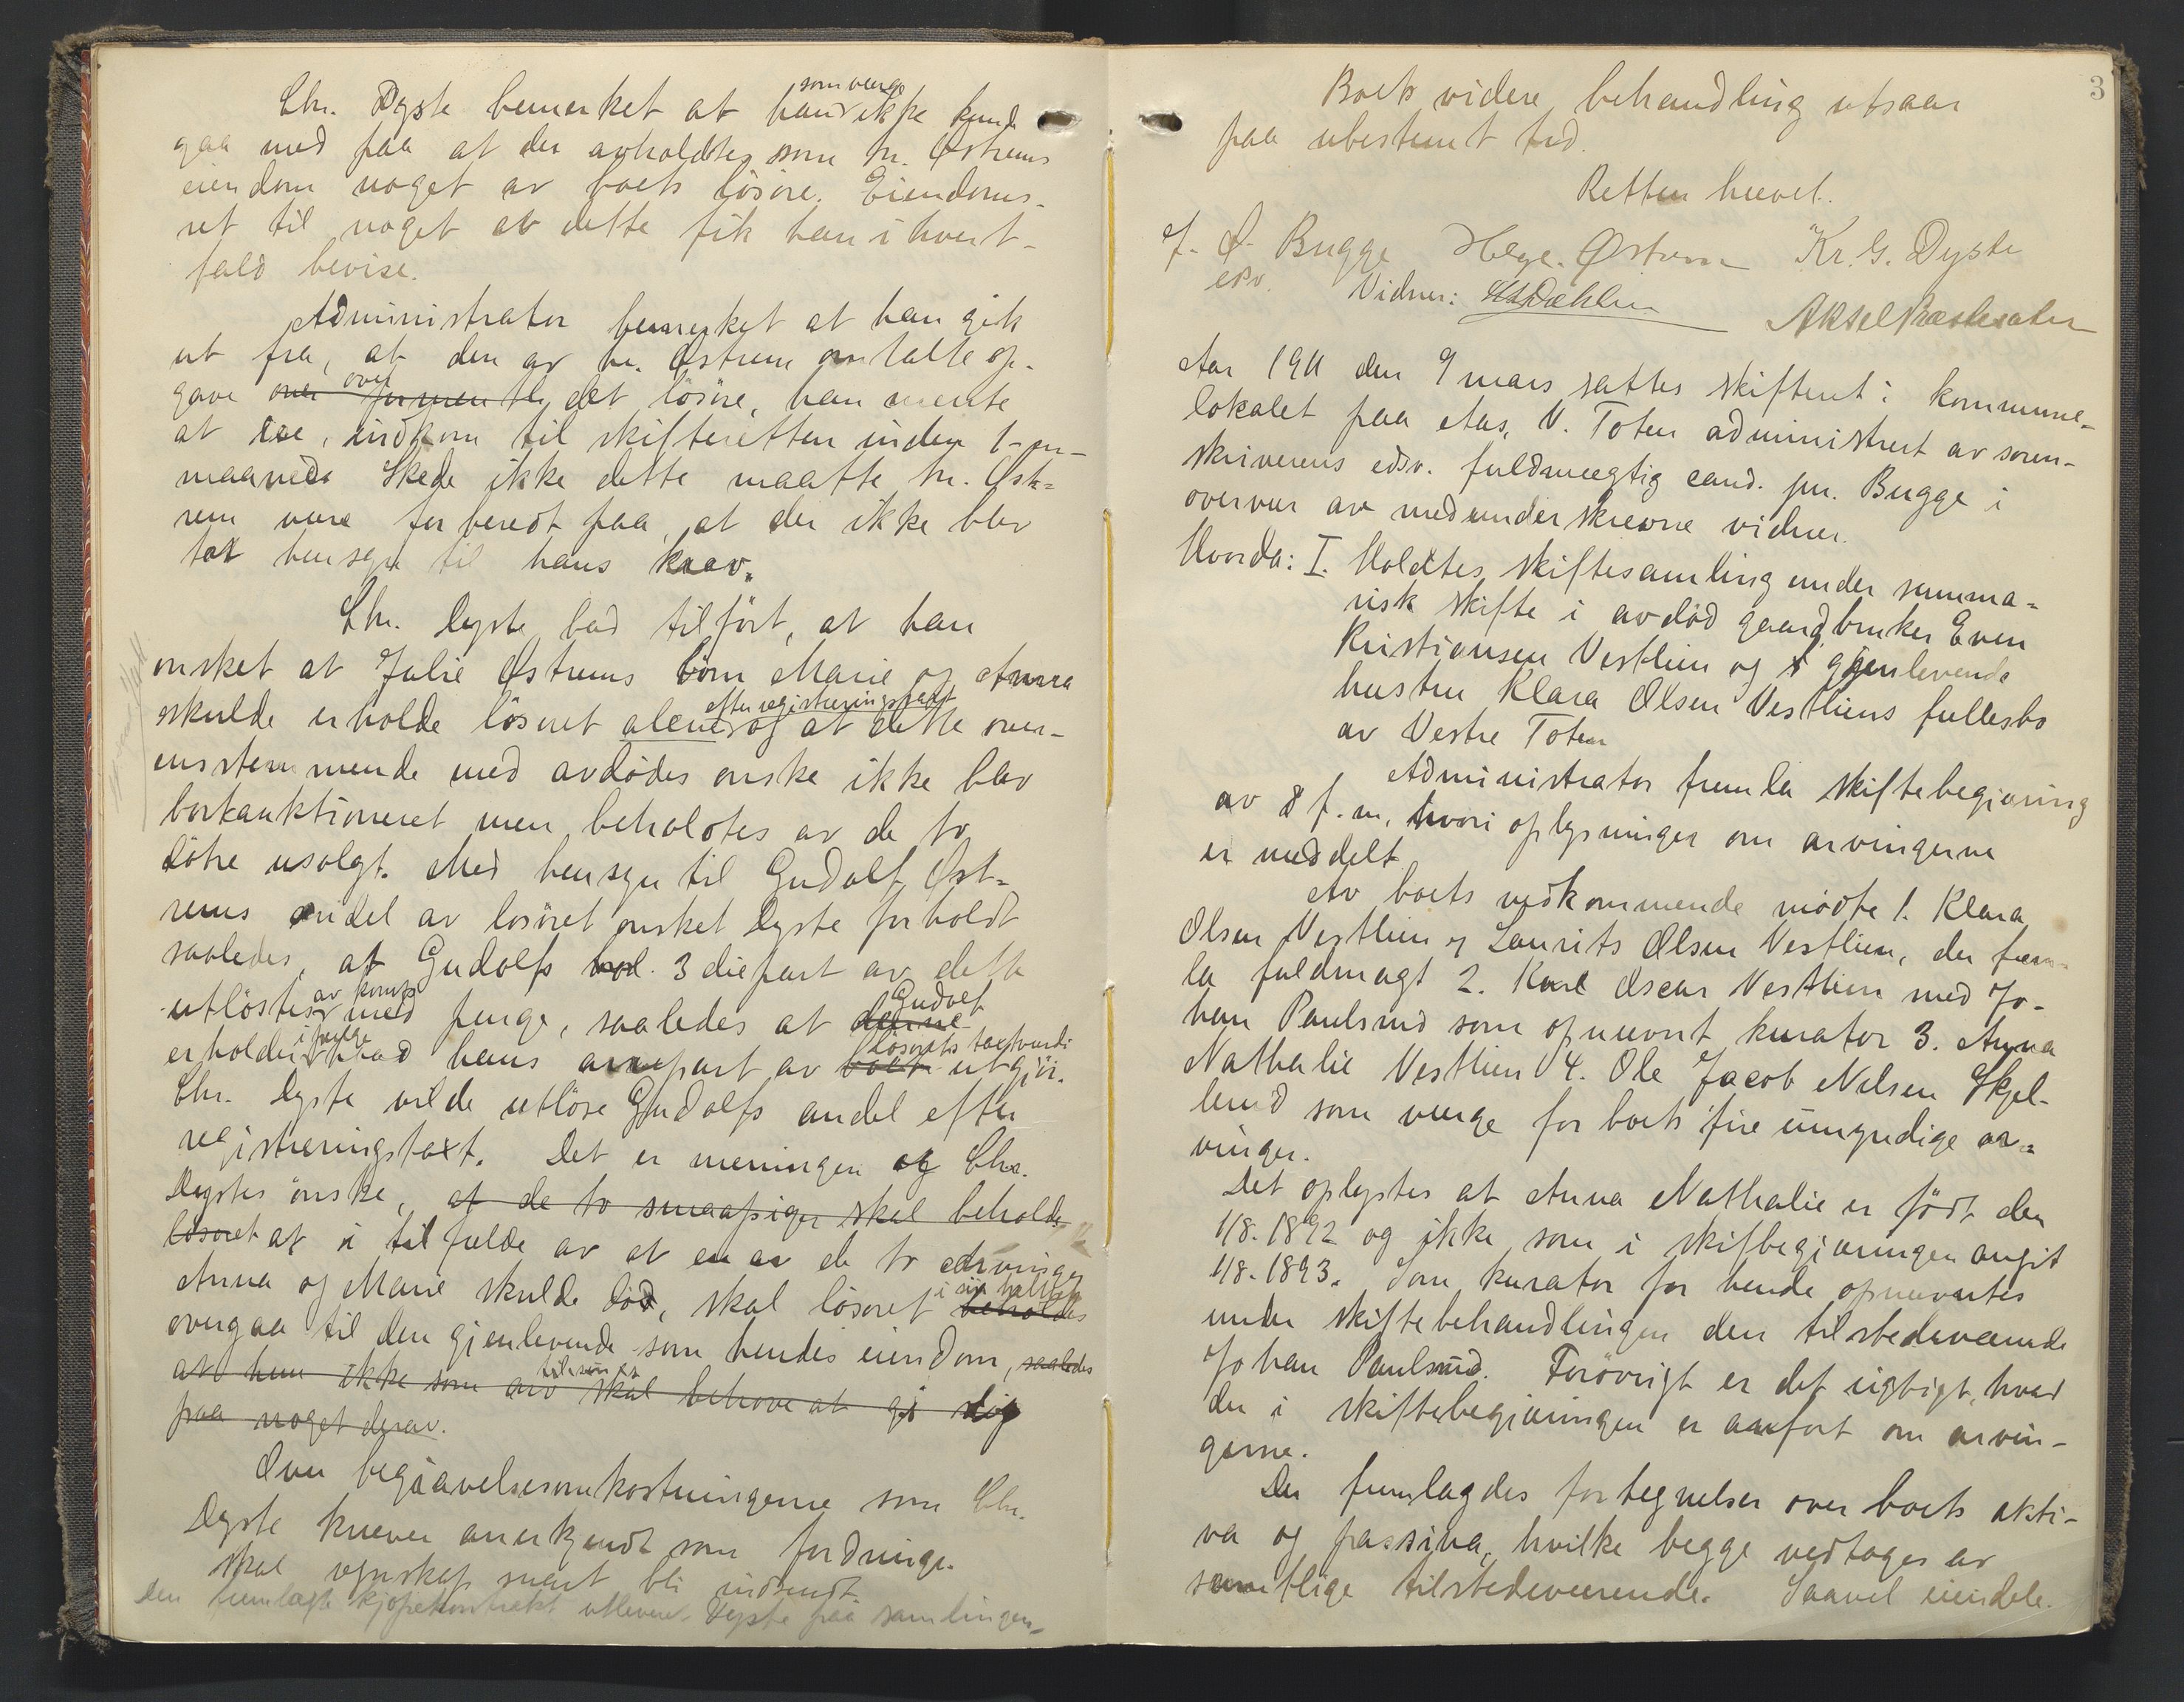 Chr. Dyste bemerket at han som verge ikke kunde
gaa med paa at der avholdtes som hr. Østrems
eiendom noget av boets lösöre. Eiendoms-
ret til noget av dette fik han i hvert-
fald bevise.
Administrator bemerket at han gik
ut fra, at den av hr. Østrem omtalte op-
gave over det lösöre, han mente
at eie, indkom til skifteretten inden 1 en
maaned. Skede ikke dette maatte hr. Øst-
rem være forberedt paa, at der ikke blev
tat hensyn til hans krav.
Chr. Dyste bad tilfört, at han
önsket at Julie Østrems börn Marie og Anna
skulde erholde lösöret alene efter registreringstaxt og at dette over-
ensstemmende med avdödes önske ikke blev
bortauktioneret men beholdtes av de to
dötre usolgt. Med hensyn til Gudolf Øst-
rems andel av lösöret önsket Dyste forholdt
saaledes, at Gudolfs 3 diepart av dette
utlöstes av komp. med penge, saaledes at Gudolf
erholder i penge hvad hans arvepart av lösörets taxtværdi utgjör.
Chr. Dyste vilde utlöse Gudolfs andel efter
registreringstaxt. Det er meningen og Chr.
Dystes önske, at de to smaapiger skal beholde
lösöret at i tilfælde av at en av de to arvinger
Anna og Marie skulde död, skal lösöret i sin helhet beholdes
overgaa til den gjenlevende som hendes eiendom, saaledes
at hun ikke som arv skal behöve at gi slip
paa noget derav.
Over begravelsesomkostningerne som Chr.
Dyste kræver anerkjendt som fordringe.
skal regnskap snart bli indsendt.
Den fremlagte kjöpekontrakt utleveret Dyste paa samlingen.
3
Boets videre behandling utsaar
paa ubestemt tid.
Retten hævet.
J. Ø. Bugge Helge Østrem Kr. G. Dyste
edsv. Vidner: Dæhlen Aksel Præstesæter
Aar 1911 den 9 mars sattes skifteret i kommune-
lokalet paa Aas, V. Toten administreret av soren-
skriverens edsv. fuldmægtig cand. jur. Bugge i
overvær av medunderskrevne vidner.
Hvorda: I. Holdtes skiftesamling under summa-
risk skifte i avdöd gaardbruker Even
Kristiansen Vestlien og gjenlevende
hustru Klara Olsen Vestliens fællesbo
av Vestre Toten
Administrator fremla skiftebegjæring
av 8 f. m. hvori oplysninger om arvingerne
er meddelt
Av boets vedkommende mödte 1. Klara
Olsen Vestlien og Laurits Olsen Vestlien, der frem-
la fuldmagt 2. Karl Oscar Vestlien med Jo-
han Paulsrud som opnævnt kurator 3. Anna
Nathalie Vestlien 4. Ole Jacob Nelsen Skjel-
lerud som verge for boets fire umyndige ar-
vinger.
Det oplystes at Anna Nathalie er födt den
1/8. 1892 og ikke som i skifbegjæringen angit
1/8. 1893. Som kurator for hende opnævntes
under skiftebehandlingen den tilstedeværende
Johan Paulsrud. Forövrigt er det rigtigt, hvad
der i skiftebegjæringen er anfört om arvin-
gerne.
Der fremlagdes fortegnelser over boets akti-
va og passiva, hvilke begge vedtages av
samtlige tilstedeværende. Saavel eiendele